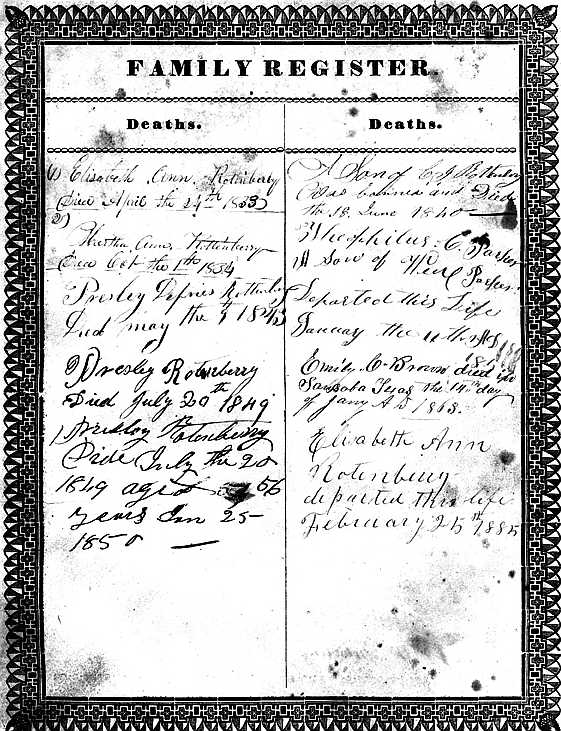 FAMILY REGISTER.
Deaths.
1) Elisabeth Ann. Rotenbery
Died April the 24th 1833
2)
Ann. Rottenberry
Died Oct the 1th 1834
Presley Rottenbery
Died may the 1843
Presley Rotenberry
Died July 20th 1849
Rotenberry
Dide July the 20
1849 aged 56
years Jan 25
1850
Deaths.
A Son of C J
Was borned and Died
the 18. June 1840
Theophilus. C. Parker
A Son of Parker
Departed this Life
January the 11th
Emily C. Brown died in
Sansaba Texas the 14th day
of Jany AD 1863.
Elizabeth Ann
Rotenbury
departed this life
February 25th 1885